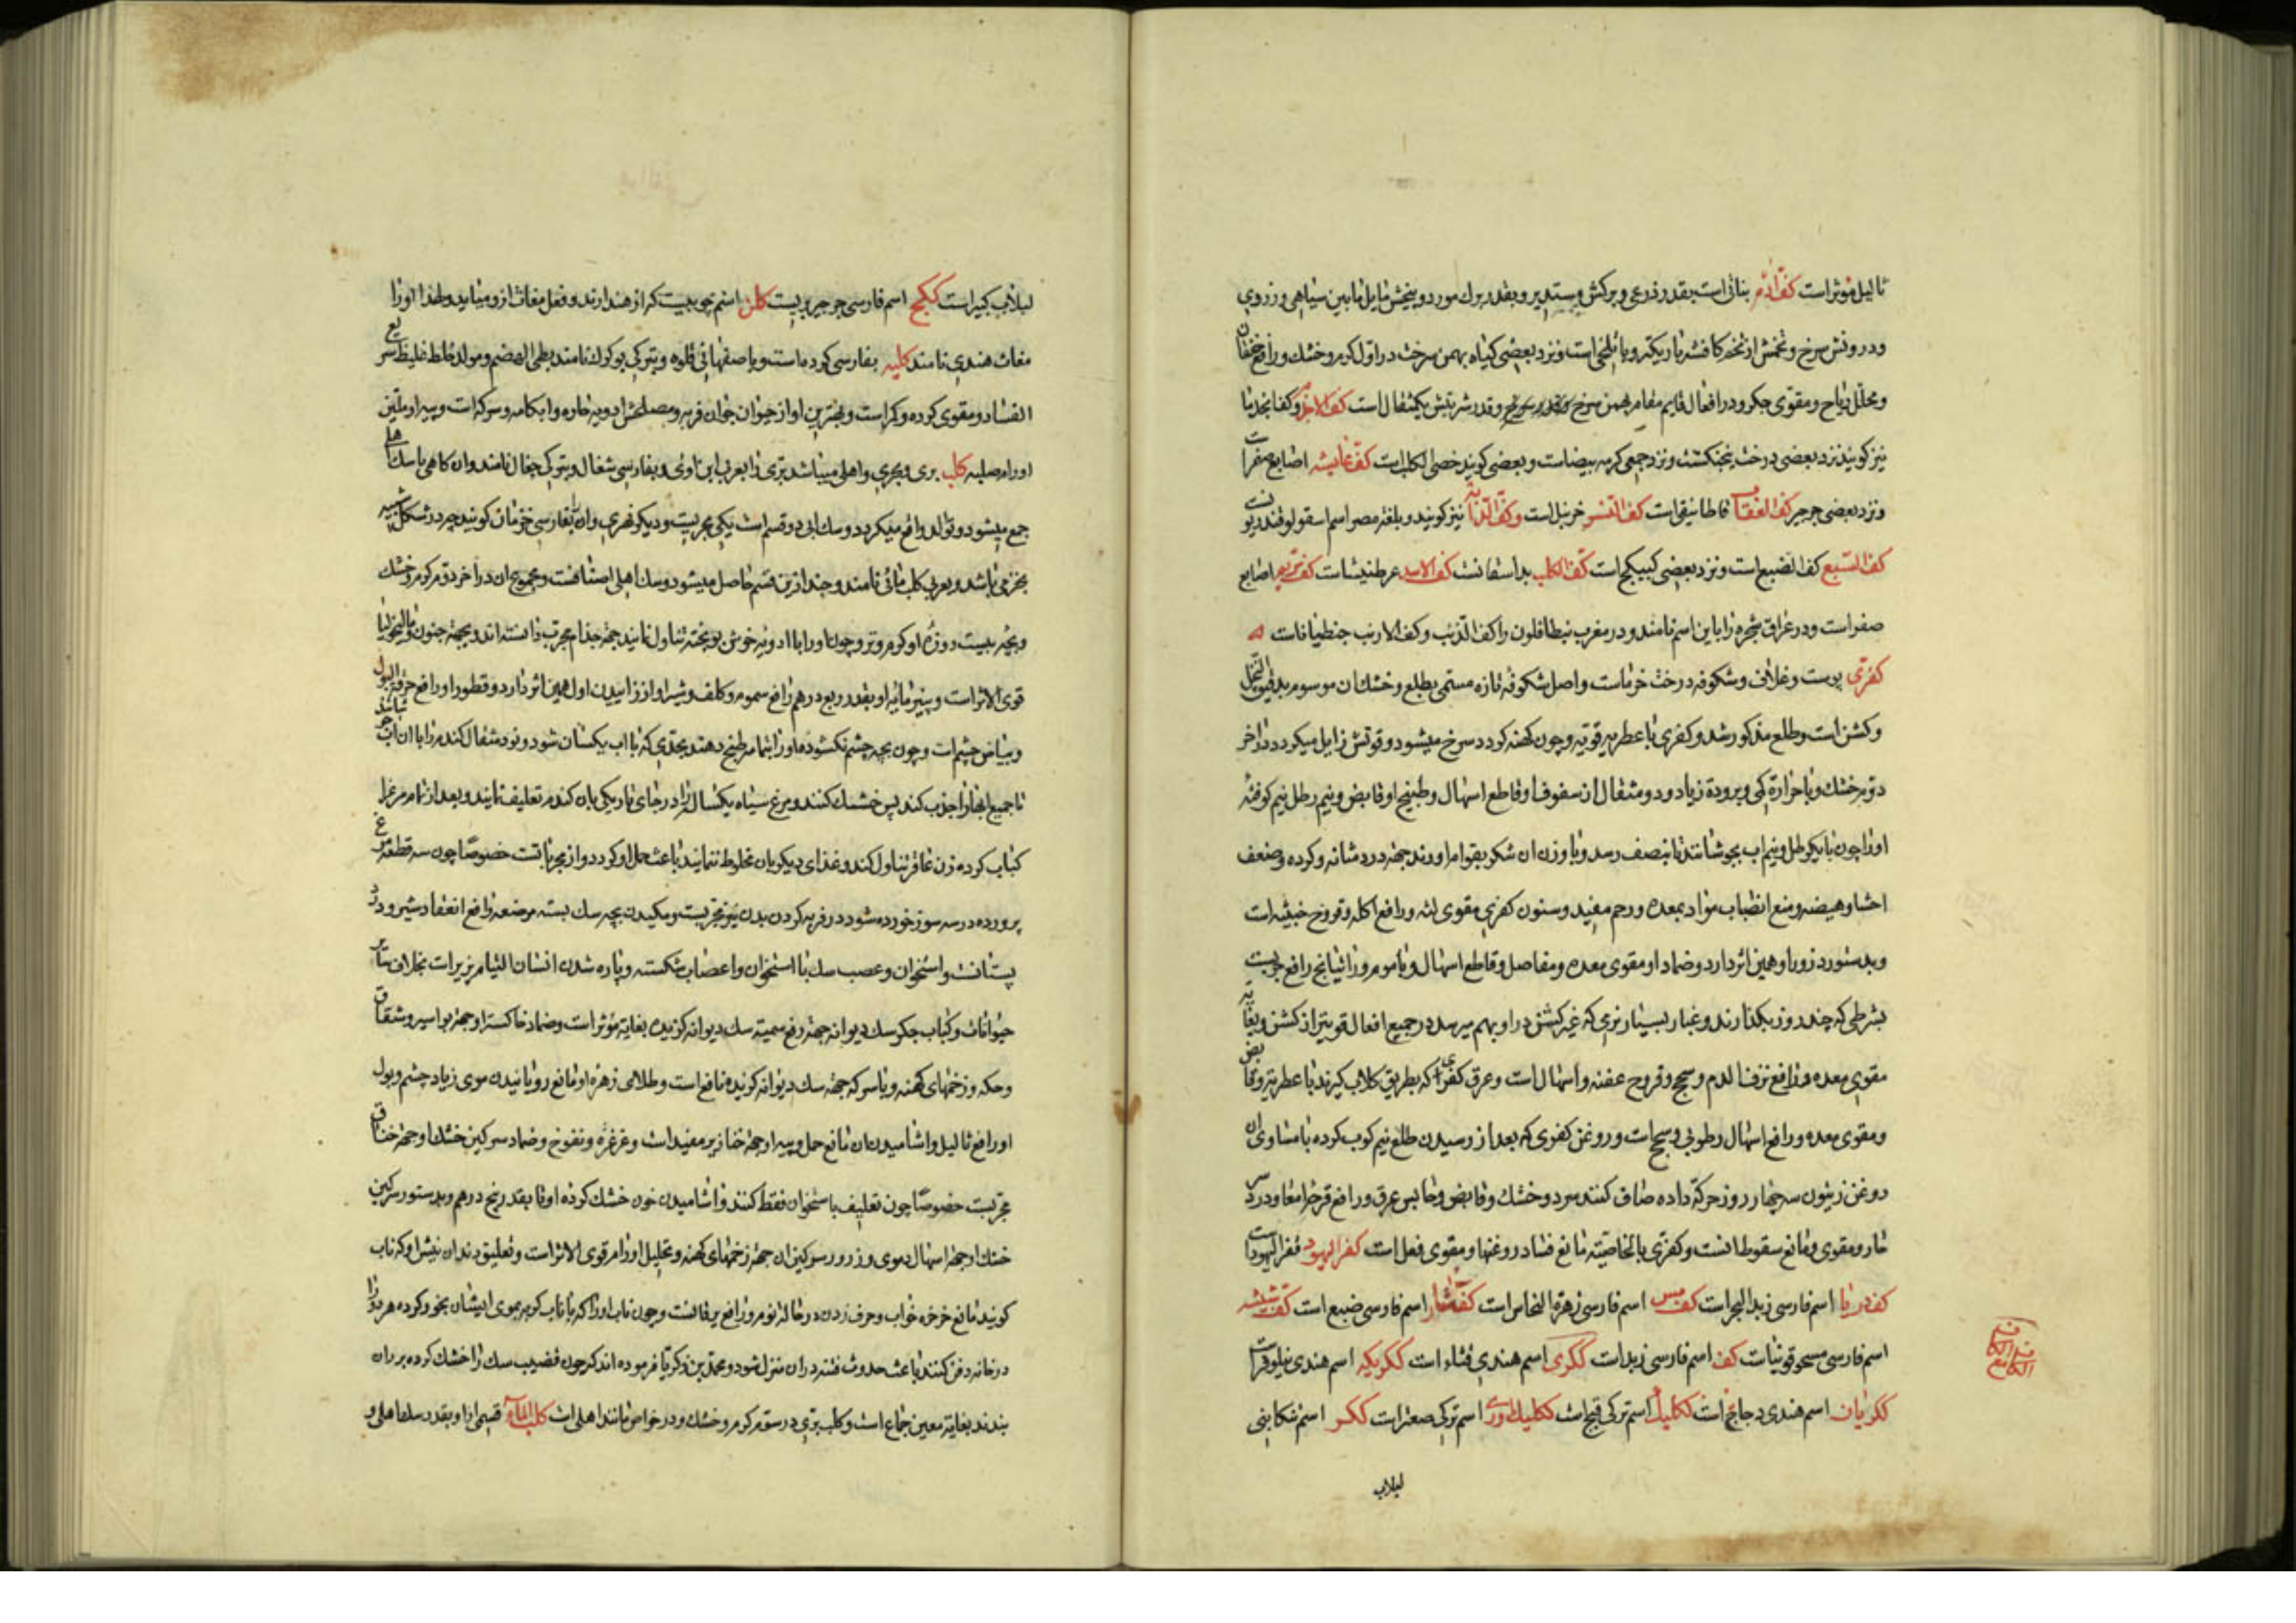 ثالیل مؤثر است کف آدم نباتی است بقدر ذرعی و برکش مستدیر و بقدر برك مورد و بیخش مایل مابین سیاهی و زردی
و درونش سرخ و تخمش از تخم کافشه باریکتر و با تلخی است و نزد بعضی کیاه بهمن سرخست در اول کرم و خشك و رافع خفقان
و محلل ریاح و مقوی جکر و در افعال قایم مقام بهمن سرخ و قدر شربتش یکمثقال است کف الاجذم و کفا
نیز کویند نزد بعضی درخت پنجنکشت و نزد جمعی کرمه بیضاست و بعضی کویند خصی الکلب است کف عایشه اصابع صفر است
و نزد بعضی جرجر کف العقاب فاطانیقی است کف النسر خرنبل است و کف الدابه نیز کویند و بلغة مصر اسم اسقولوقندریونست
کف السبع کف الضبع است و نزد بعضی کبیکج است کف الکلب بداسفانست کف الاسد عرطنیثا است کف مریم اصابع
صفر است و در عراق شجره را باین اسم نامند و در مغرب نبطافلون را کف الذئب و کف الارنب جنطیانا است
کفرّی پوست و غلاف و شکوفه درخت خرماست و اصل شکوفه تازه مسمی بطلع و خشك آن موسوم بدقیق النخل
و کشن است و طلع مذکور شد و کفری با عطریه قویه و چون کهنه کردد سرخ میشود و قوتش زایل میکردد در آخر
دوم خشك و با حرارة کمی و برودة زیاد و دو مثقال از سفوف او قاطع اسهال و طبیخ او قابض و نیم رطل نیم کوفته
او را چون با یکرطل و نیم آب بجوشانند تا بنصف رسد و با وزن آن شکر بقوام آورند جهة درد مثانه و کرده و ضعف
احشا و هیضه و منع انصباب مواد بمعده و رحم مفید و سنون کفری مقوی لثه و رافع اکله و قروح خبیثه است
و بدستور ذرور او همین اثر دارد و ضماد او مقوی معده و مفاصل و قاطع اسهال و با موم و راتیانج رافع جربست
بشرطی که چند روز بکذارند و غبار بسیار نرمی که غیر کشن در او بهم میرسد در جمیع افعال قویتر از کشن و بغایه
مقوی معده و رافع نزف الدم و سحج و قروح عفنه و اسهال است و عرق کفری که بطریق کلاب کیرند با عطریة و قابض
و مقوی معده و رافع اسهال رطوبی و سحج است و روغن کفری که بعد از رسیدن طلع نیم کوب کرده با مساوی آن
روغن زیتون سه چهار روز حرکة داده صاف کنند سرد و خشك و قابض و حابس عرق و رافع قرحه امعا و درد سر
حار و مقوی و مانع سقوط انست و کفری بالخاصیته مانع فساد روغنها و مقوی فعل است کفر الیهود قفر الیهود است
کف دریا اسم فارسی زبد البحر است کف مس اسم فارسی زهرة النحاس است کفتار اسم فارسی ضبع است کف شیشه
اسم فارسی مسحوقونیا است کف اسم فارسی زبد است ککری اسم هندی قثاء است ککریکه اسم هندی نیلوفر است
ککریان اسم هندی دجاج است ککلیك اسم ترکی قبج است ککلیك اوتی اسم ترکی صعتر است ککر اسم تنکابنی
لبلاب
لبلاب کبیر است ککج اسم فارسی جرجیر بریست کلن اسم چوبیست که از هند آرند و فعل مغاث از و میاید و لهذا او را
مغاث هندی نامند کلیه بفارسی کرده ماست و باصفهانی قلوه و بترکی بوکرك نامند بطی الهضم و مولد خلط غلیظ سریع
الفساد و مقوی کرده و کمر است و بهترین او از حیوان جوان فربه و مصلحش ادویه حاره و آبکامه و سرکه است و پیه او ملین
اورام صلبه کلب بری و بحری و اهلی میباشد بری را بعربی ابن آوی و بفارسی شغال و بترکی چقال نامند و ان کاهی با سك اهلی
جمع میشود و توالد واقع میکردد و سك آبی دو قسم است یکی بحریست و دیکر نهری و آن را بفارسی خزمیان کویند چه در شکل شبیه
بخز می باشد و بعربی کلب مائی نامند و جند ازین قسم حاصل میشود و سك اهلی اصناف است و مجموع ان در آخر دوم کرم و خشك
و بچه بیست روزه او کرم و تر و چون او را با ادویه خوش بو پخته تناول نمایند جهة جذام مجرب دانسته اند و بجهة جنون و مالیخولیا
قوی الاثر است و پنیرمایه او بقدر ربع درهم رافع سموم و کلف و شیر او از زاییدن اول همین اثر دارد و قطور او رافع حرقة البول
و بیاض چشم است و چون بچه چشم نکشوده او را بتمامه طبخ دهند بحدی که با آب یکسان شود و نود مثقال کندم را با آن آب
تا جمیع آنها را جذب کند پس خشك کنند و مرغ سیاه یکساله را در جای تاریکی بان کندم تعلیف نمایند و بعد از تمام مرغ را
کباب کرده زن عاقر تناول کند و غذای دیکر بان مخلوط ننماید باعث حمل او کردد و از مجربا تست خصوصا چون سه قطعه مرغ
پرورده در سه سوز خورده شود در فربه کردن بدن نیز مجربست و مکیدن بچه سك بسته موضعه رافع انعقاد شیر و درد
پستانست و استخوان و عصب سك با استخوان و اعصاب شکسته و پاره شدن انسان التیام پذیر است بخلاف سایر
حیوانات و کباب جکر سك دیوانه جهة رفع سمیة سك دیوانه کزیده بغایة مؤثر است و ضماد خاکستر او جهة بواسیر و شقاق
و حکه و زخمهای کهنه و با سرکه جهة سك دیوانه کزیده نافع است و طلای زهره او مانع رویانیدن موی زیاد چشم و بول
او رافع ثالیل و اشامیدن ان مانع حمل و پیه او جهة خنازیر مفید است و غرغره و نفوخ و ضماد سرکین خشك او جهة خناق
مجربست خصوصا چون تعلیف باستخوان فقط کنند و اشامیدن خون خشك کرده او تا بقدر پنج درهم و بدستور سرکین
خشك او جهة اسهال دموی و ذرور سرکین ان جهة زخمهای کهنه و تحلیل اورام قوی الاثر است و تعلیق دندان نیش او که ناب
کویند مانع خرخره خواب و حرف زدن در حالة نوم و رافع یرقانست و چون ناب او را که با ناب کربه بموی ایشان بخور کرده هر دو را
در خانه دفن کنند باعث حدوث فتنه در ان منزل شود و محمد بن زکریا فرموده اند که چون قضیب سك را خشك کرده بر ران
بندند بغایة معین جماع است و کلب بری در سوم کرم و خشك و در خواص مانند اهلی است کلب الماء قسمی از او بقدر سك اهلی و